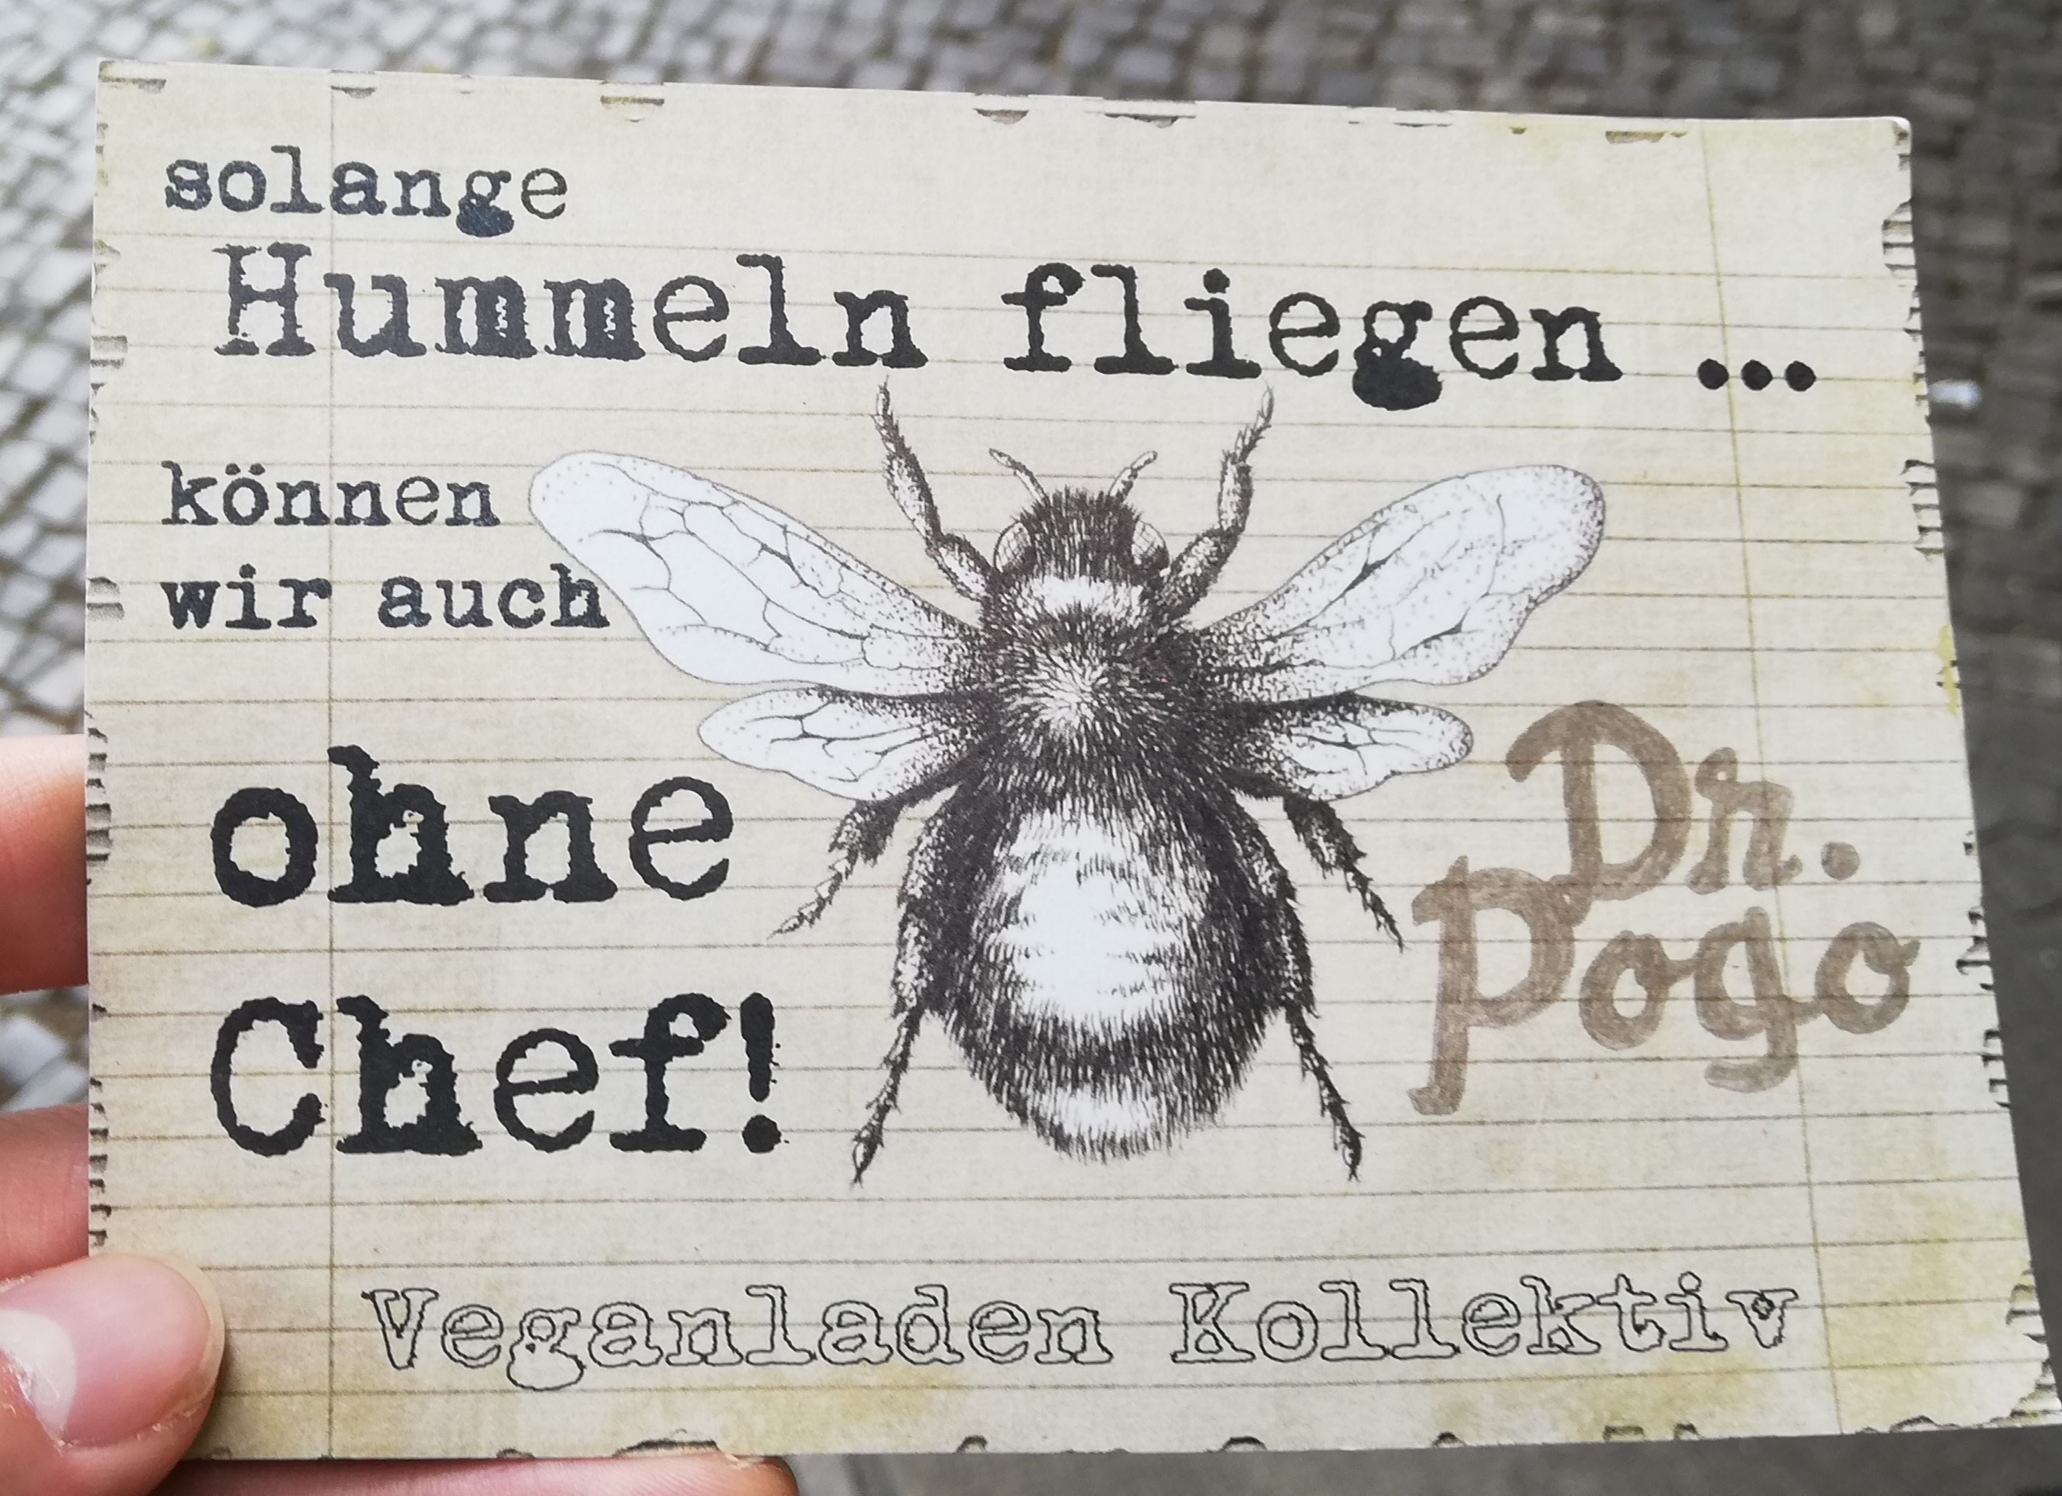 solange
Hummeln fliegen ...
können
wir auch
ohne
Chef!
Dr.
Pogo
Veganladen Kollektiv